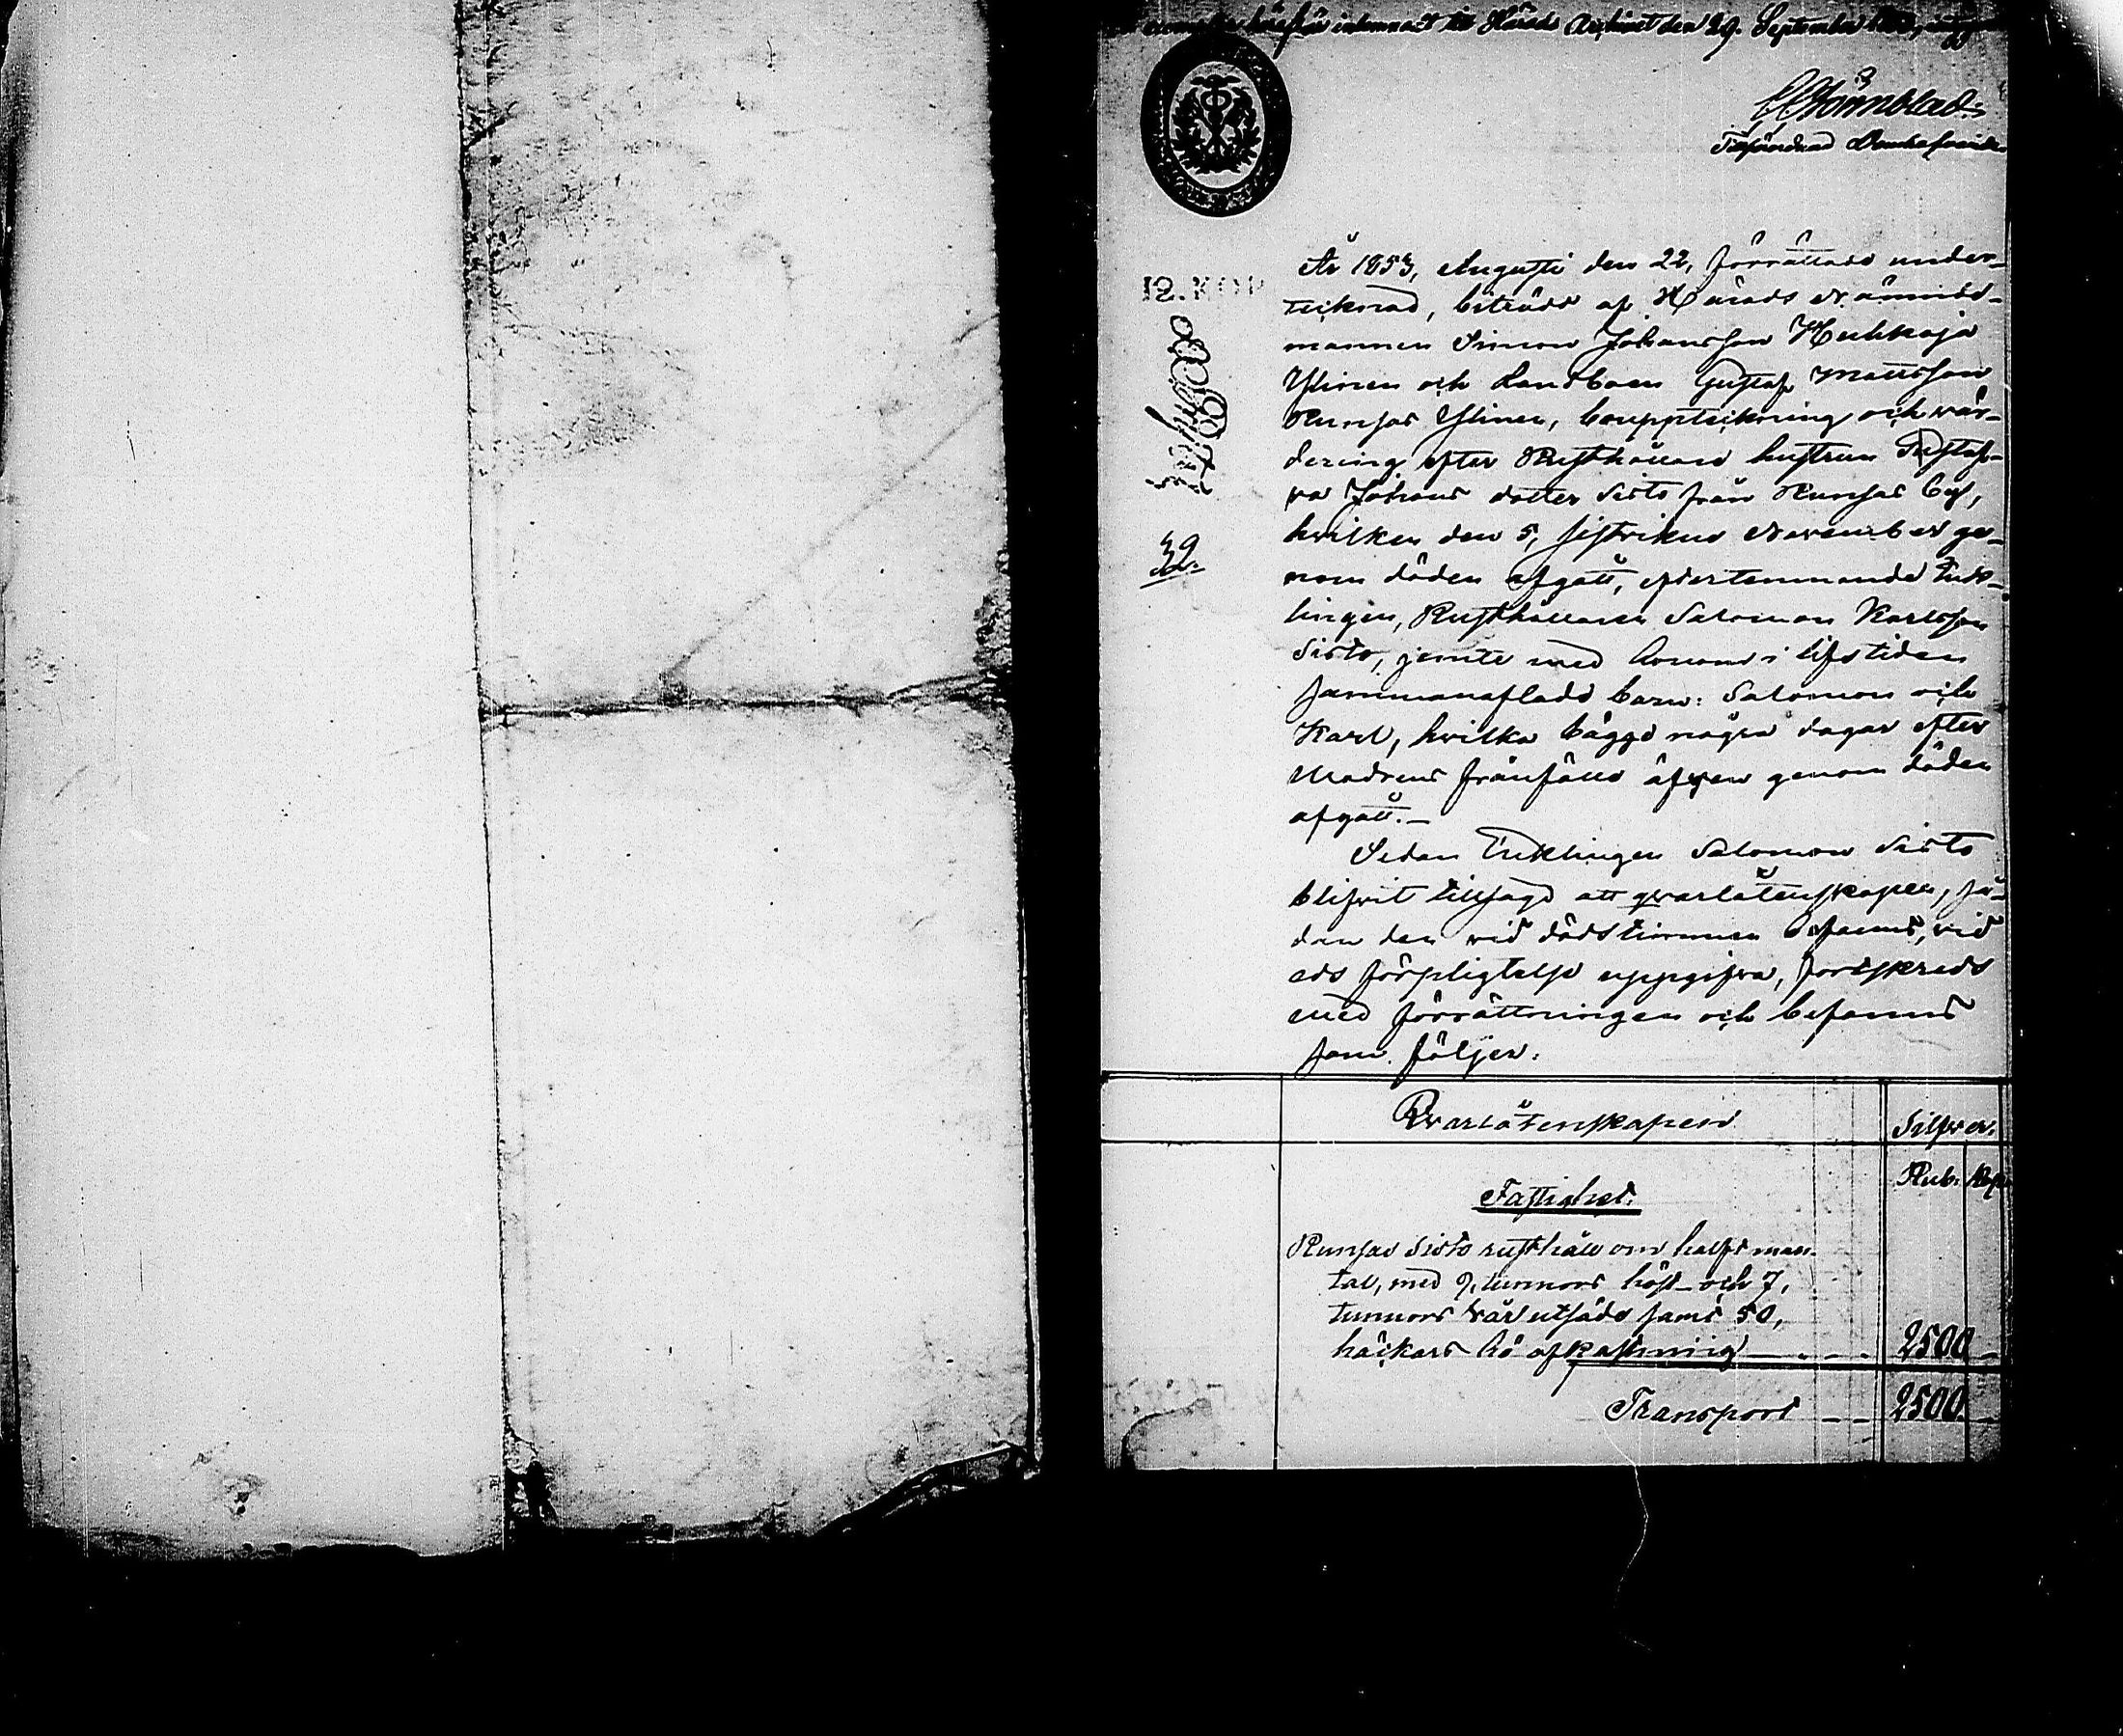 härstädes inlemnadt till Härads Archivet den 29. September
Tillförordnad Domhafvande
12. KOP
32.
År 1853, Augusti den 22, förrättade under-
tecknad, biträdd af Härads Nämnde-
mannen Simon Johansson Huhkoja
Ylinen och Landboen Gustaf Mattsson
Runsas Ylinen, bouppteckning och vär-
dering efter Rusthållare hustrun Gustaf-
va Johans dotter Sisto från Runsas by,
hvilken den 5, sistvikne November ge-
nom döden afgått, efterlemnande Enk-
lingen, Rusthållaren Salomon Karlsson
Sisto, jemte med honom i lifstiden
sammanaflade barn: Salomon och
Karl, hvilka bägge några dagar efter
Modrens frånfälle äfven genom döden
afgått.—
Sedan Enklingen Salomon Sisto
blifvit tillsagd att qvarlåtenskapen, så-
dan den vid dödstimmen befanns, vid
eds förpligtelse uppgifva, fortskreds
med förrättningen och befanns
som följer:
Qvarlåtenskapen
Silfver.
Rub. Kop.
Fastighet.
Runsas Sisto rusthåll om halft man-
tal, med 9, tunnors höst- och 7,
tunnors vår utsäde samt 50,
häckars hö afkastning — . — . — 2500 —
Transport — — 2500 —